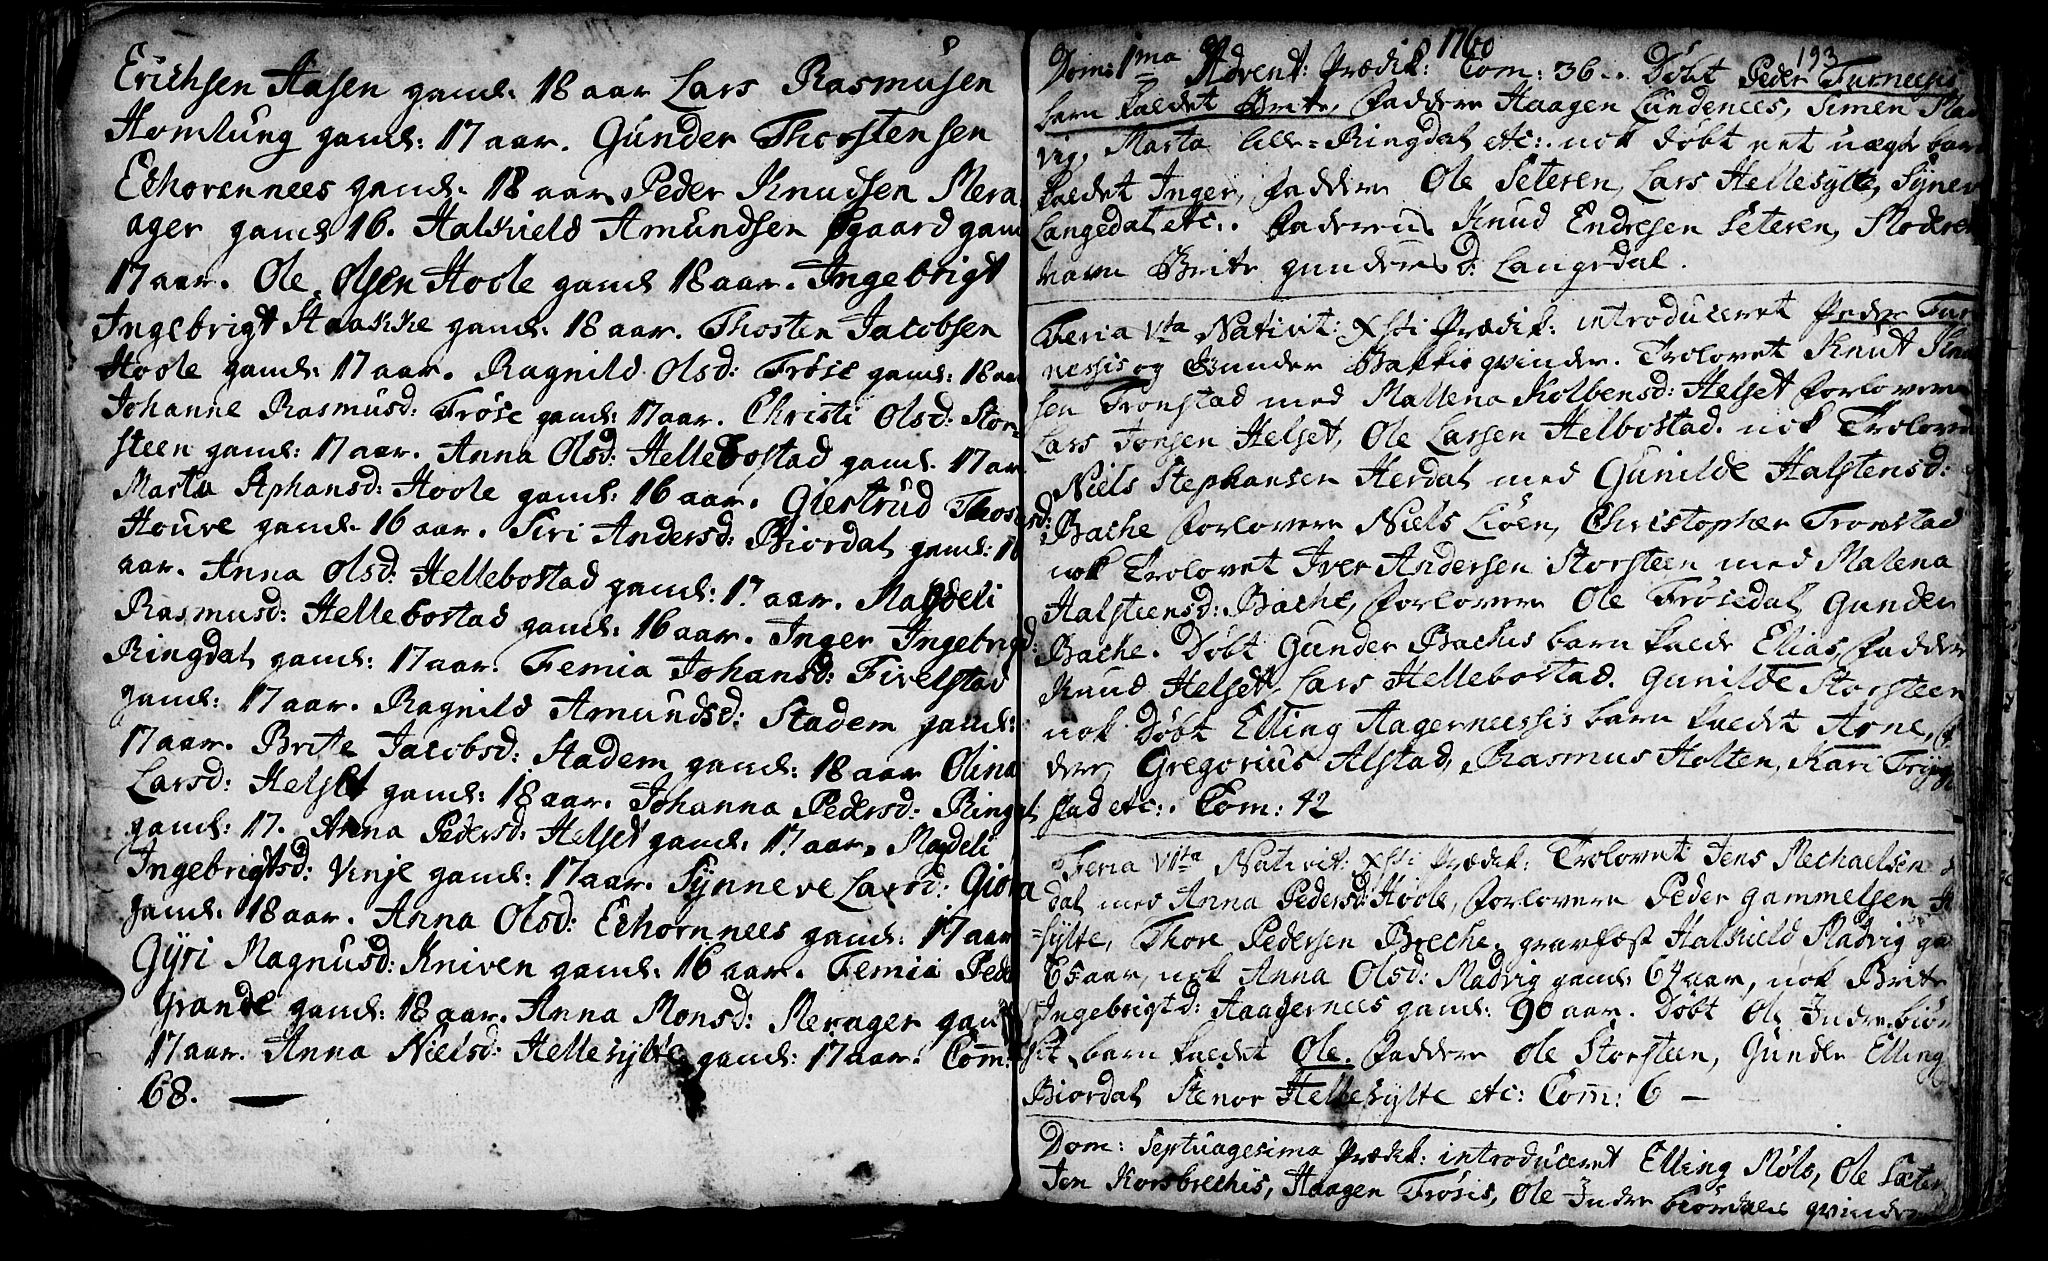 Erichsen Aasen gaml: 18 aar Lars Rasmusen
Homlung gaml: 17 aar. Gunder Thorstensen
Echorennees gaml: 18 aar Peder Knudsen Mera
ager gaml 16. Halkield Amundsen gaard gam
17 aar. Ole Olsen Hoole gaml 18 aar. Ingebrigt
Ingebrigt Staakke gaml: 18 aar. Thosten Jacobsen
Hoole gaml: 17 aar. Ragnild Olsd: Frøse gaml: 18 aar
Johanne Rasmusd: Frøse gaml: 17 aar. Christi Olsd: Stor-
steen gaml: 17 aar. Anna Olsd: Hellebostad gaml. 17 aar
Marta Stphansd: Hoole gaml: 16 aar. Giertrud Thosensd:
Houve gaml. 16 aar. Siri Andersd: Biordal gaml: 16
aar. Anna Olsd: Hellebostad gaml: 17 aar. Magdeli
Rasmusd: Hellebostad gaml: 16 aar. Inger Ingebrigd:
Ringdal gaml: 17 aar. Femia Johansd: Fivelstad
gaml: 17 aar. Ragnild Amundsd: Stadem gaml:
17 aar. Brite Jacobsd: Stadem gaml: 18 aar Olina
Larsd: Helset gaml: 18 aar. Johanna Pedersd: Ringdal
gaml: 17. Anna Pedersd: Helset gaml: 17 aar. Magdeli
Ingebrigtsd: Vinje gaml: 17 aar. Synneve Larsd: Giøra
gaml: 18 aar. Anna Olsd: Echornnees gaml: 17 aar
Gyri Magnusd: Kniven gaml: 16 aar. Femia Peder
Grande gaml: 18 aar. Anna Monsd: Merager gaml
17 aar. Anna Nielsd: Hellesylte gaml: 17 aar. Com:
68.
1760
193
Dom: 1ma Advent: Prædik: Com: 36. Døbt Peder Furneesis
barn kaldet Brite, faddere Haagen Lundenees, Simen Mad
vig, Marta lille-Ringdal etc: nok døbt eet uægte barn
kaldet Inger, faddere Ole Seteren, Lars Hellesylte, Synev
Langedal etc. faderen Knud Endresen Seteren, Moderen
navn Brite gundersd: Langedal.
Feria Vta Nativit: Xsti Prædik: introduceret Peder Fur
nessis og Gunder Bakkis qvinder. Trolovet Knut Knu
sen Tronstad med Mallena Kolbensd: Helset forlovere
Lars Jonsen Helset, Ole Larsen Helbostad. nok Trolovet
Niels Stephansen Herdal med Gunilde Halstensd:
Bache forlovere Niels Liøen, Christopher Tronstad
nok Trolovet Iver Andersen Storsteen med Malena
Halsteensd: Bache, forlovere Ole Frøsedal Gunder
Bache. Døbt Gunder Bachis barn kalde Elias, fadder
Knud Helset, Lars Hellebostad. Gunilde Storsteen
nok Døbt Elling Aagerneessis barn kaldet Arne, f
der, Gregorius Alstad, Rasmus Holten, Kari Tryg
stad etc: Com: 42
Feria VIta Nativit: Xsti Prædik: Trolovet Jens Mechaelsen
dal med Anna Pedersd: Hoole, forlovere Peder gammelsen H
sylte, Thore Pedersen Breche, gravfæst Halkield Madvig ga
65 aar, nok Anna Olsd: Madvig gaml 64 aar, nok Brite
Ingebrigtd: Haagernees gaml: 90 aar. Døbt Ole Indrebiør
barn kaldet Ole. faddere Ole Storsteen, Gundle Elling
Biordal Stenor Hellesylte etc: Com: 6 –
Dom: Septuagesima Prædik: introduceret Elling Møls, Ole Sæter
Jon Korsbrechis, Haagen Frøsis, Ole Indre biordals qvinder